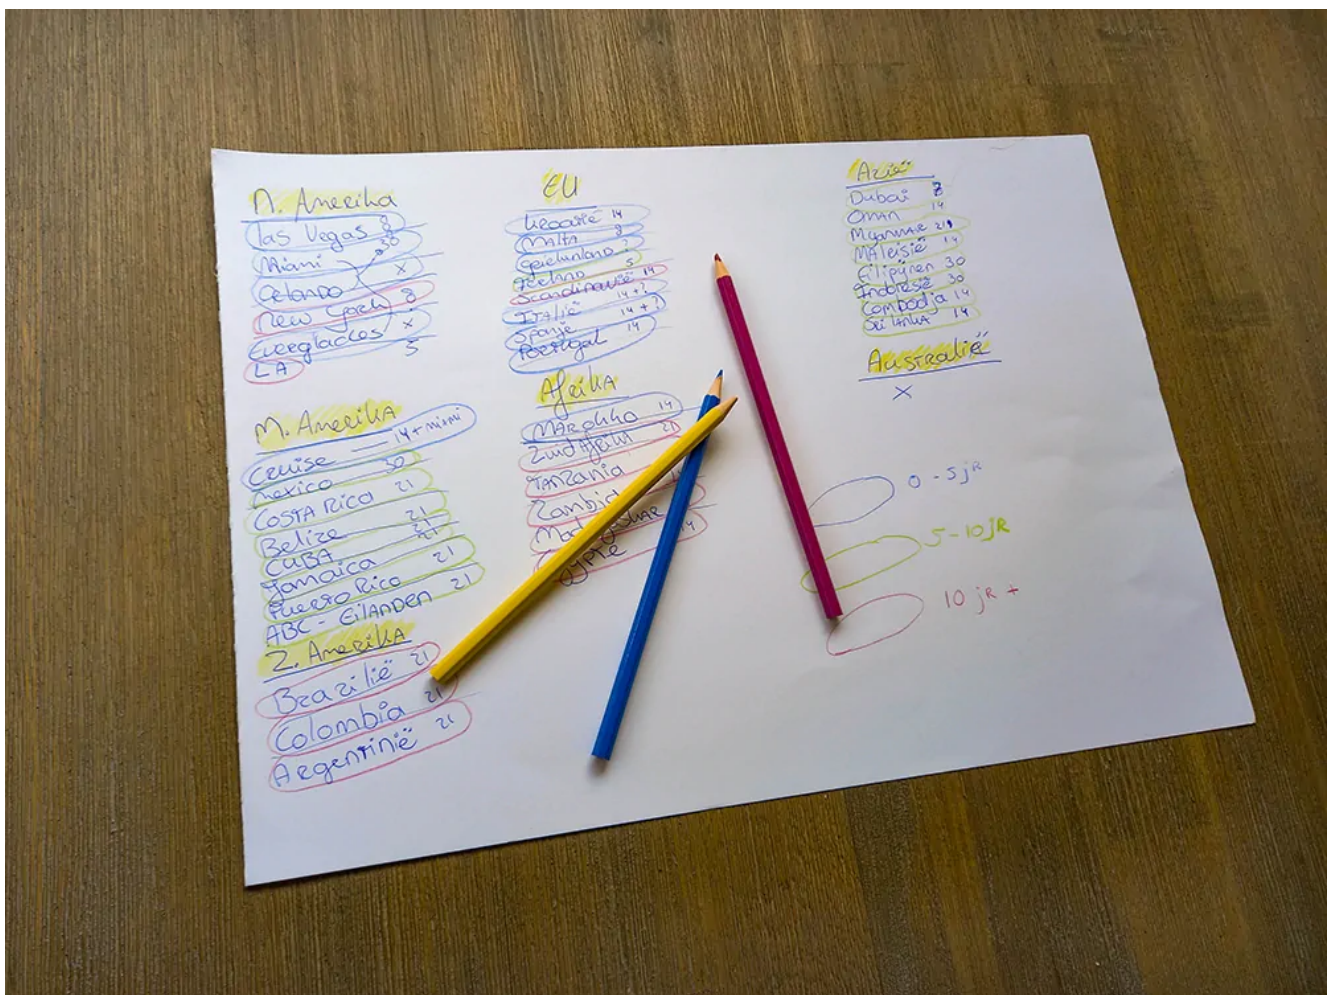 N. Amerika
Las Vegas 8
Miami 30
Orlando x
New York 8
Everglades x
LA 5
M. Amerika
Cruise 14 + miami
Mexico 30
COSTA Rica 21
Belize 21
CUBA 21
Jamaica 21
Puerto Rico 21
ABC - EILANDEN 21
Z. Amerika
Brazilië 21
Colombia 21
Argentinië 21
EU
Kroatië 14
MALTA 8
Griekenland ?
IJsland 5
Scandinavië 14
ITALIË 14 + ?
Spanje 14 + ?
Portugal 14
Afrika
MAROKKO 14
Zuid Afrika 21
TANZANIA
Zambia
14
Azië
Dubai 8
OMAN 14
Myanmar 21
MALEISIË 14
Filipijnen 30
Indonesië 30
Cambodja 14
Sri LANKA 14
Australië
x
0 - 5 jR
5 - 10 jR
10 jR +